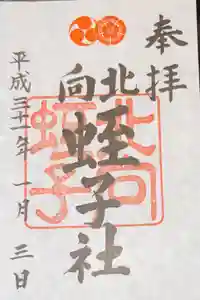 奉拝
北向
蛭子社
平成三十一年一月三日
北向
蛭子